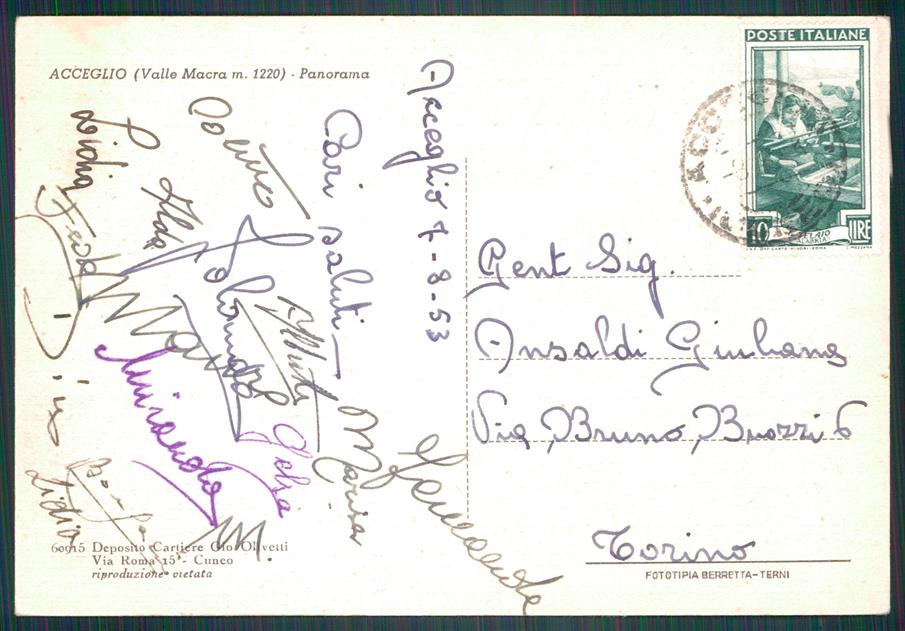 ACCEGLIO (Valle Macra m. 1220) - Panorama
POSTE ITALIANE
10 LIRE
TELAIO
CALABRIA
Acceglio 7-8-53
Cari saluti
Gent Sig.
Ansaldi Giuliana
Via Bruno Buozzi 6
Torino
Lidia
Ilda
Jolanda
Miranda
Delia
Marisa
Fernanda
Dino
Lidia
60915 Deposito Cartiere Gio Olivetti
Via Roma 15 - Cuneo
riproduzione vietata
FOTOTIPIA BERRETTA-TERNI